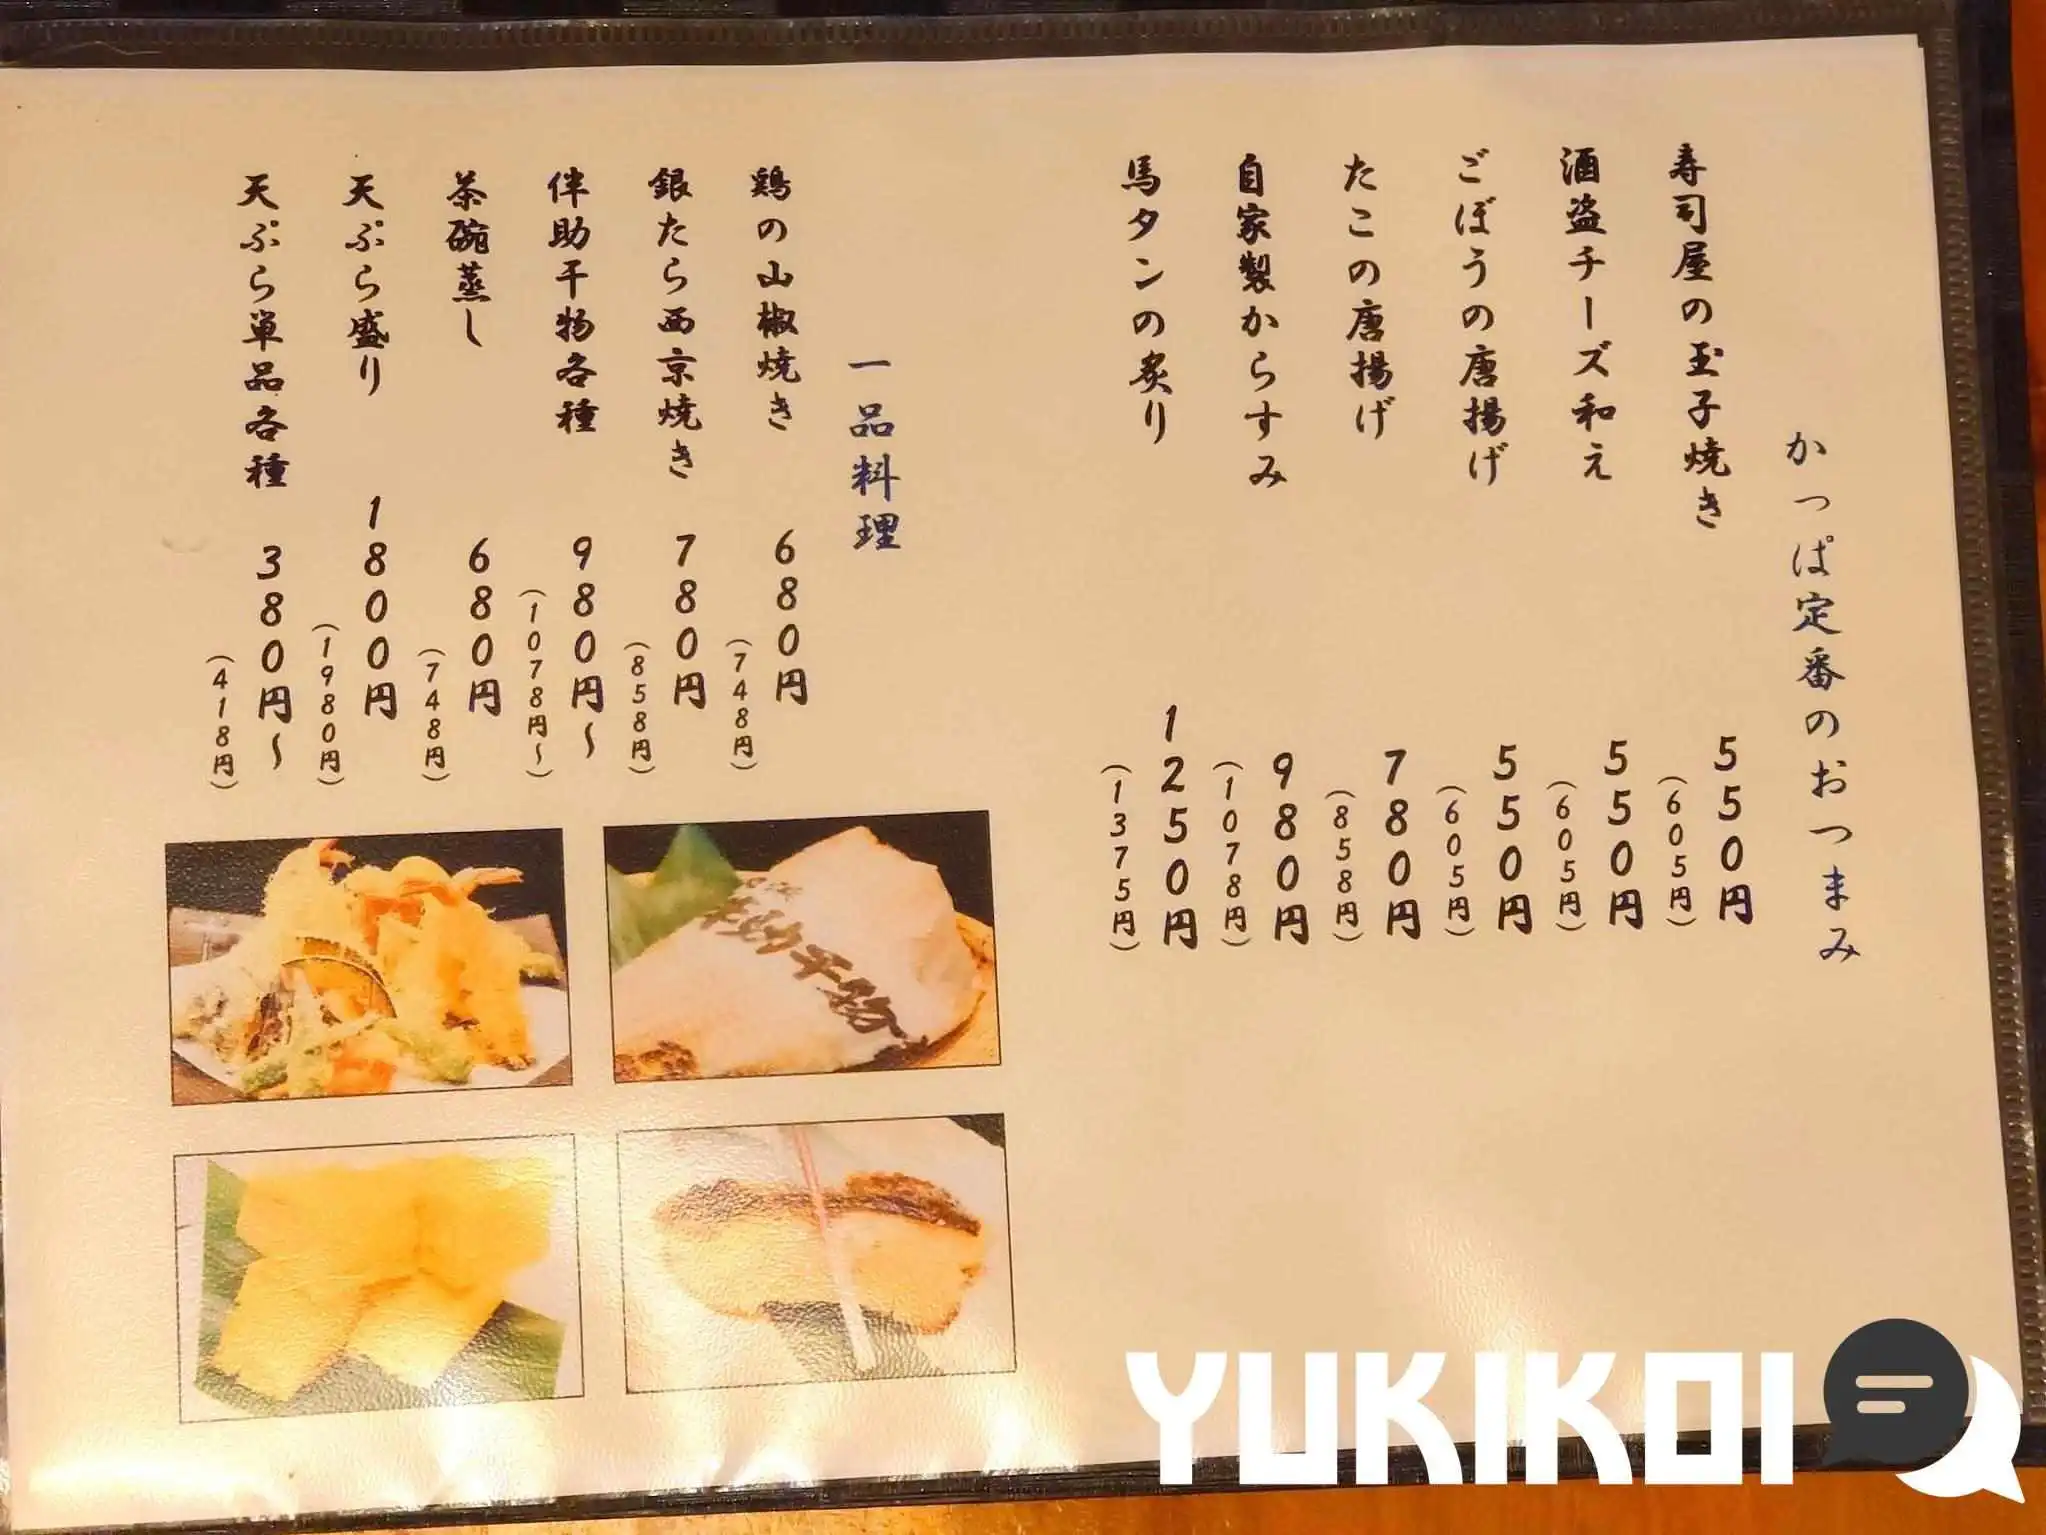 かっぱ定番のおつまみ
寿司屋の玉子焼き 550円
(605円)
酒盗チーズ和え 550円
(605円)
ごぼうの唐揚げ 550円
(605円)
たこの唐揚げ 780円
(858円)
自家製からすみ 980円
(1078円)
馬タンの炙り 1250円
(1375円)
一品料理
鶏の山椒焼き 680円
(748円)
銀たら西京焼き 780円
(858円)
伴助干物各種 980円～
(1078円～)
茶碗蒸し 680円
(748円)
天ぷら盛り 1800円
(1980円)
天ぷら単品各種 380円～
(418円)
YUKIKOI